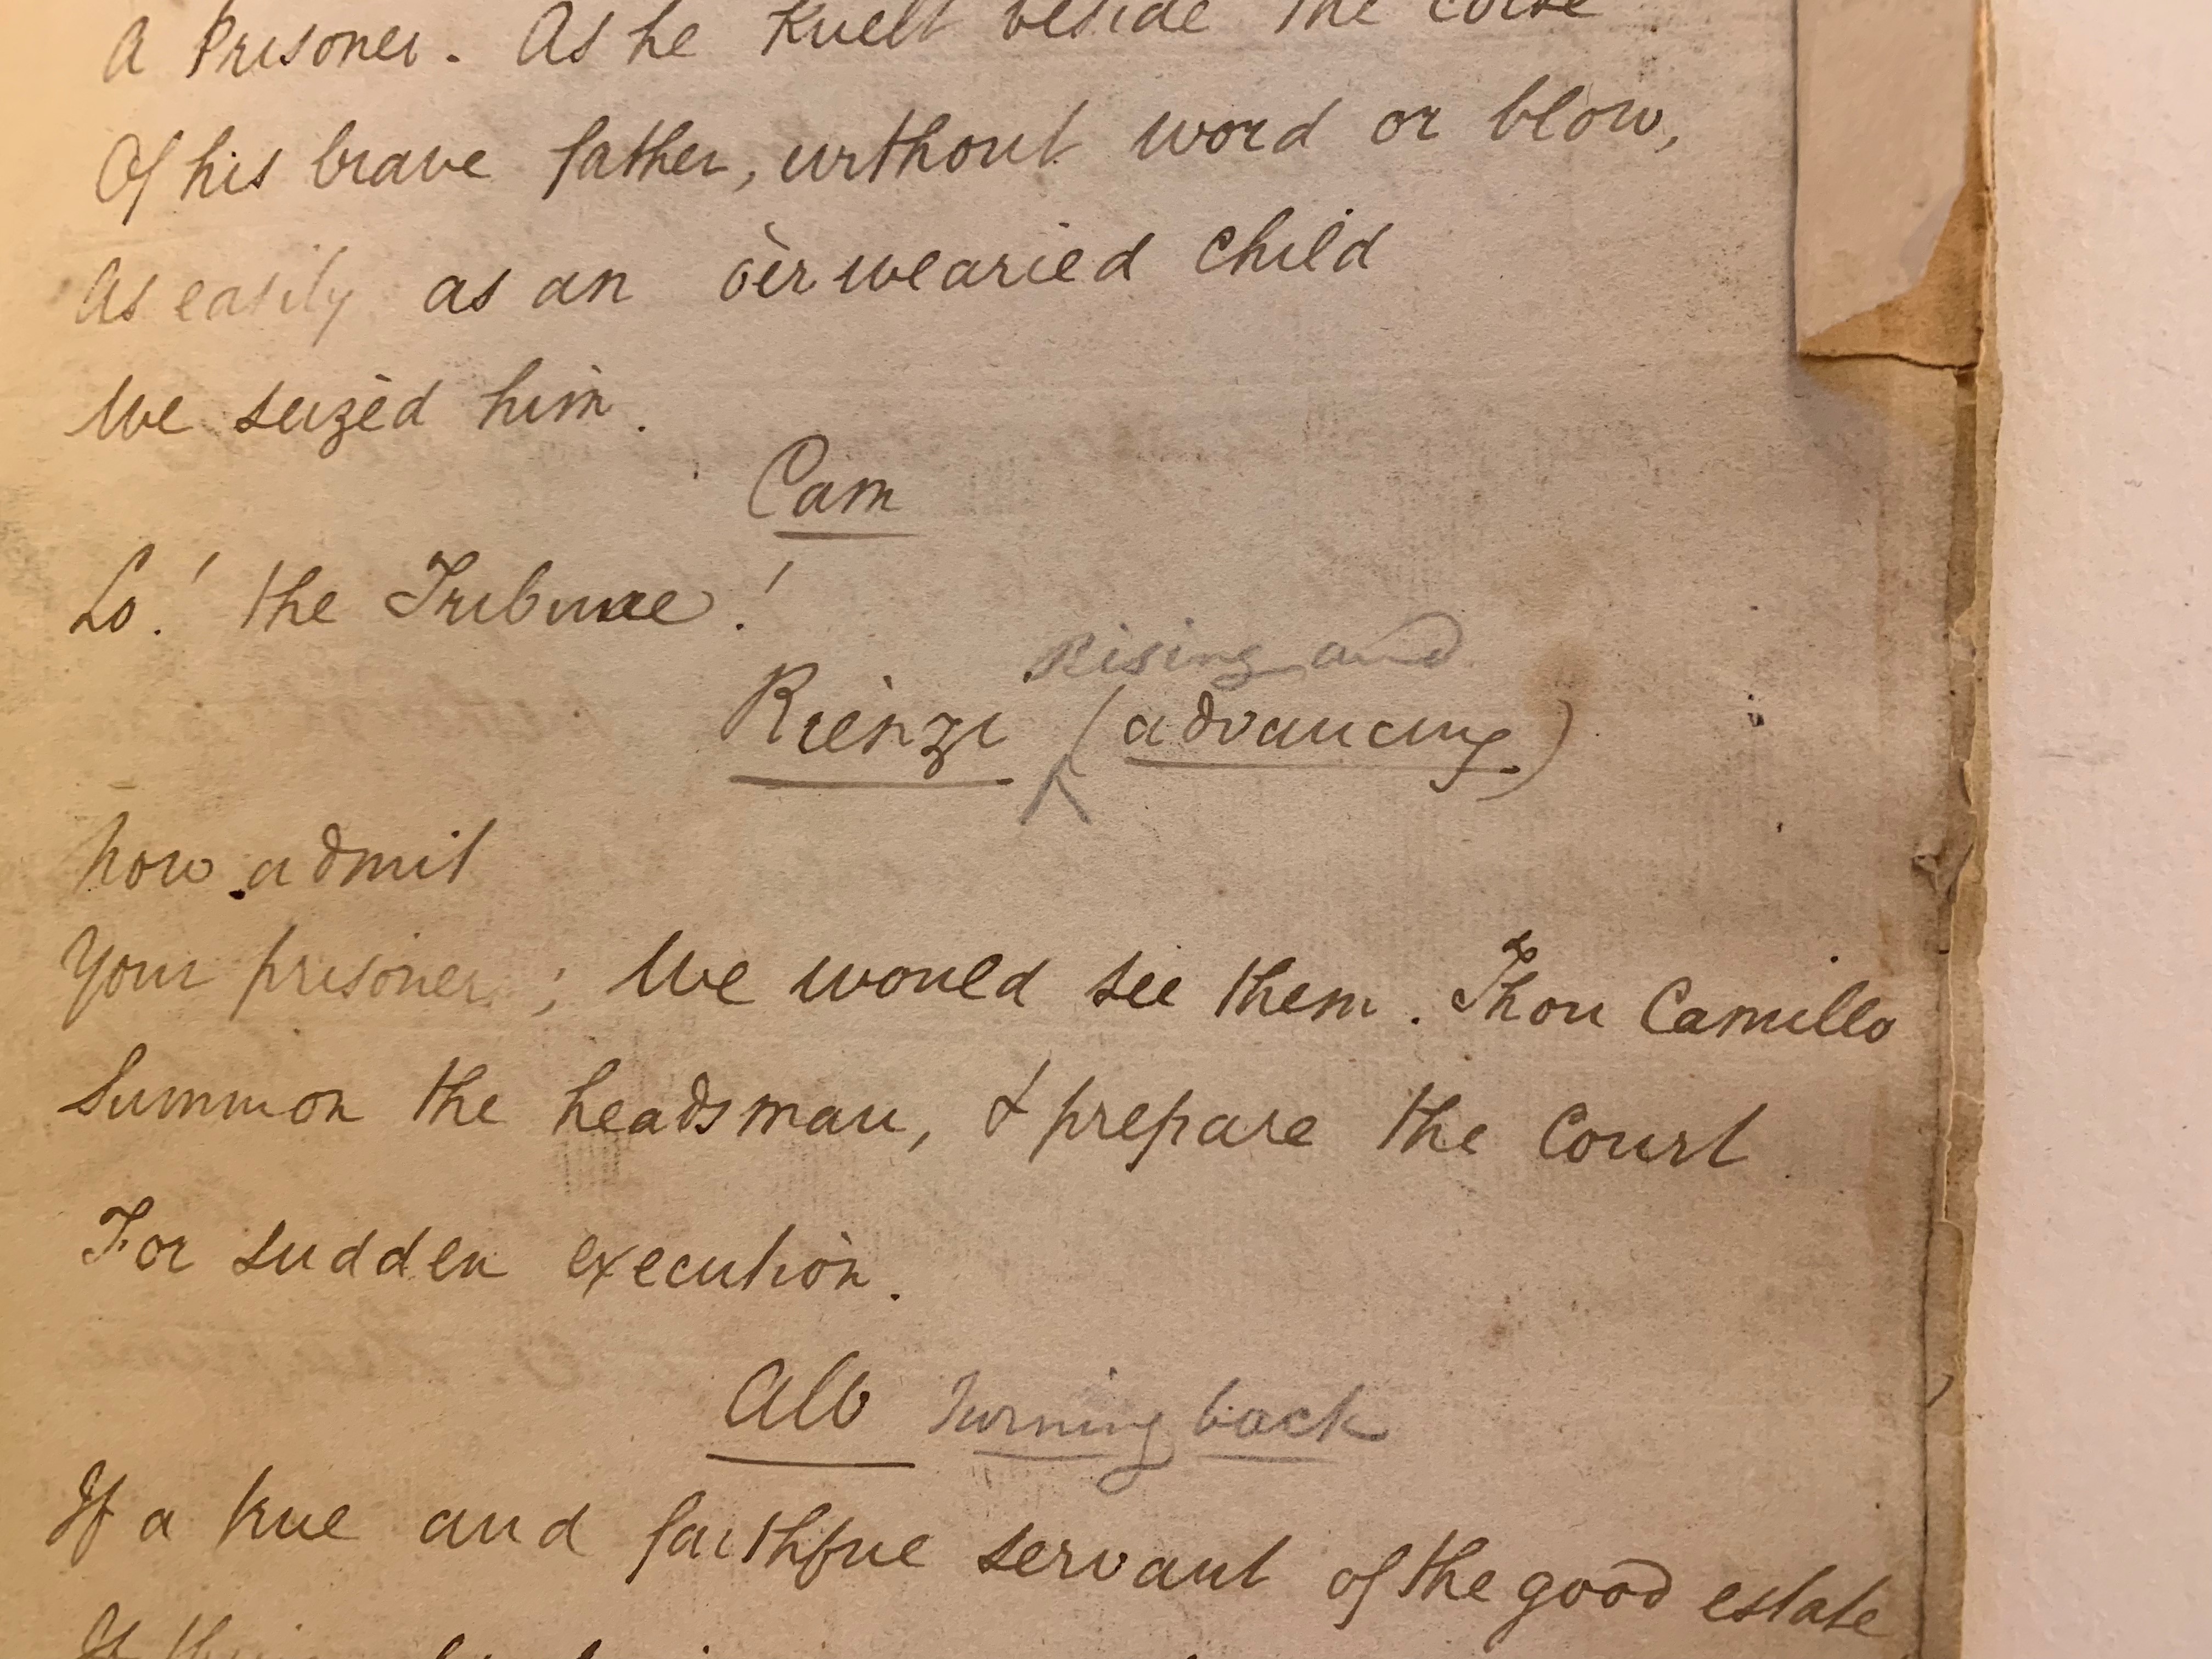 A Prisoner. As he knelt beside the corse
Of his brave father, without word or blow,
As easily as an o'erwearied child
We seized him.
Cam
Lo! the Tribune!
Rising and
Rienzi (advancing)
Now admit
Your prisoner; We would see them. Thou Camillo
Summon the headsman, & prepare the Court
For sudden execution.
Alb Turning back
If a true and faithful servant of the good estate
If